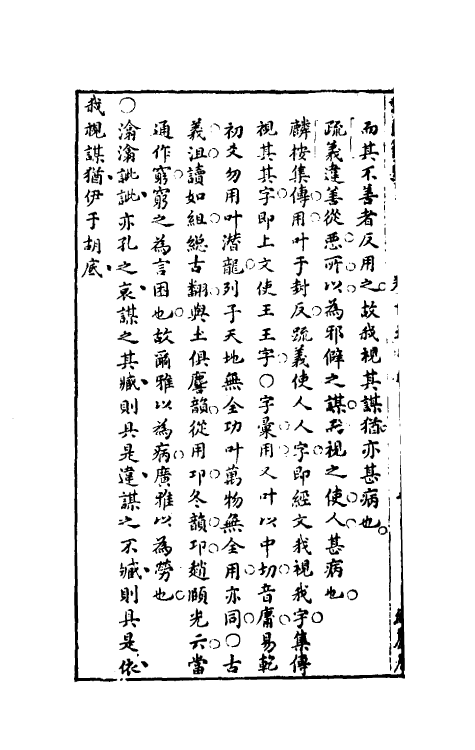 而其不善者反用之故我視其謀猶亦甚病也
疏義違善從惡所以為邪僻之謀而視之使人甚病也
麟按集傳用叶于封反疏義使人人字即經文我視我字集傳
視其其字即上文使王王字○字彙用又叶以中切音庸易乾
初爻勿用叶潛龍列子天地無全功叶萬物無全用亦同○古
義沮讀如組總古翻與土俱麌韻從用邛冬韻邛趙頤光云當
通作窮窮之為言困也故爾雅以為病廣雅以為勞也
○潝潝訿訿亦孔之哀謀之其臧則具是違謀之不臧則具是依
我視謀猶伊于胡底